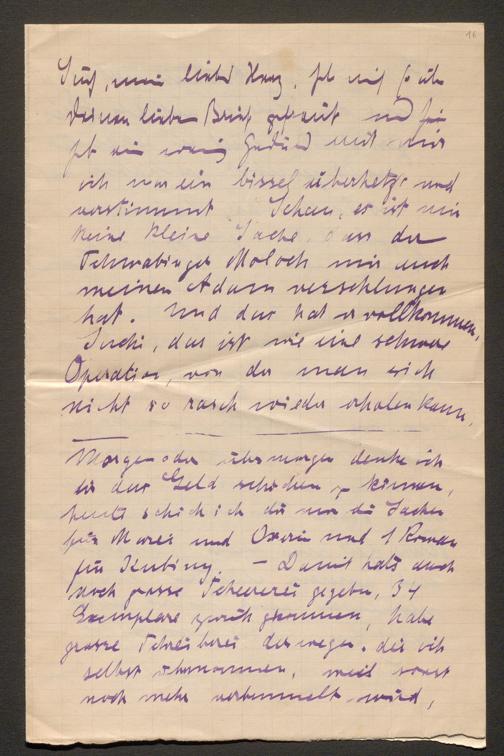 16
Suchi, mein lieber Herz, hab mich so über
Deinen lieben Brief gefreut und Sie
hab ein wenig Geduld mit mir
ich war ein bissel überhetzt und
verstimmt. Schau, es ist mir
keine kleine Sache, dass der
Schwabinger Moloch mir auch
meinen Adam verschlungen
hat. Und das hat er vollkommen,
Suchi, das ist wie eine schwere
Operation, von der man sich
nicht so rasch wieder erholen kann.
Morgen oder übermorgen denke ich
dir das Geld schicken zu können,
heute schick ich dir nur die Sachen
für und und 1 Roman
für Kubiny. — Damit hats auch
noch grosse gegeben, 34
Exemplare zurück gekommen, habe
grosse Schreiberei deswegen, die ich
selbst übernommen, weil sonst
noch mehr verbummelt wird,